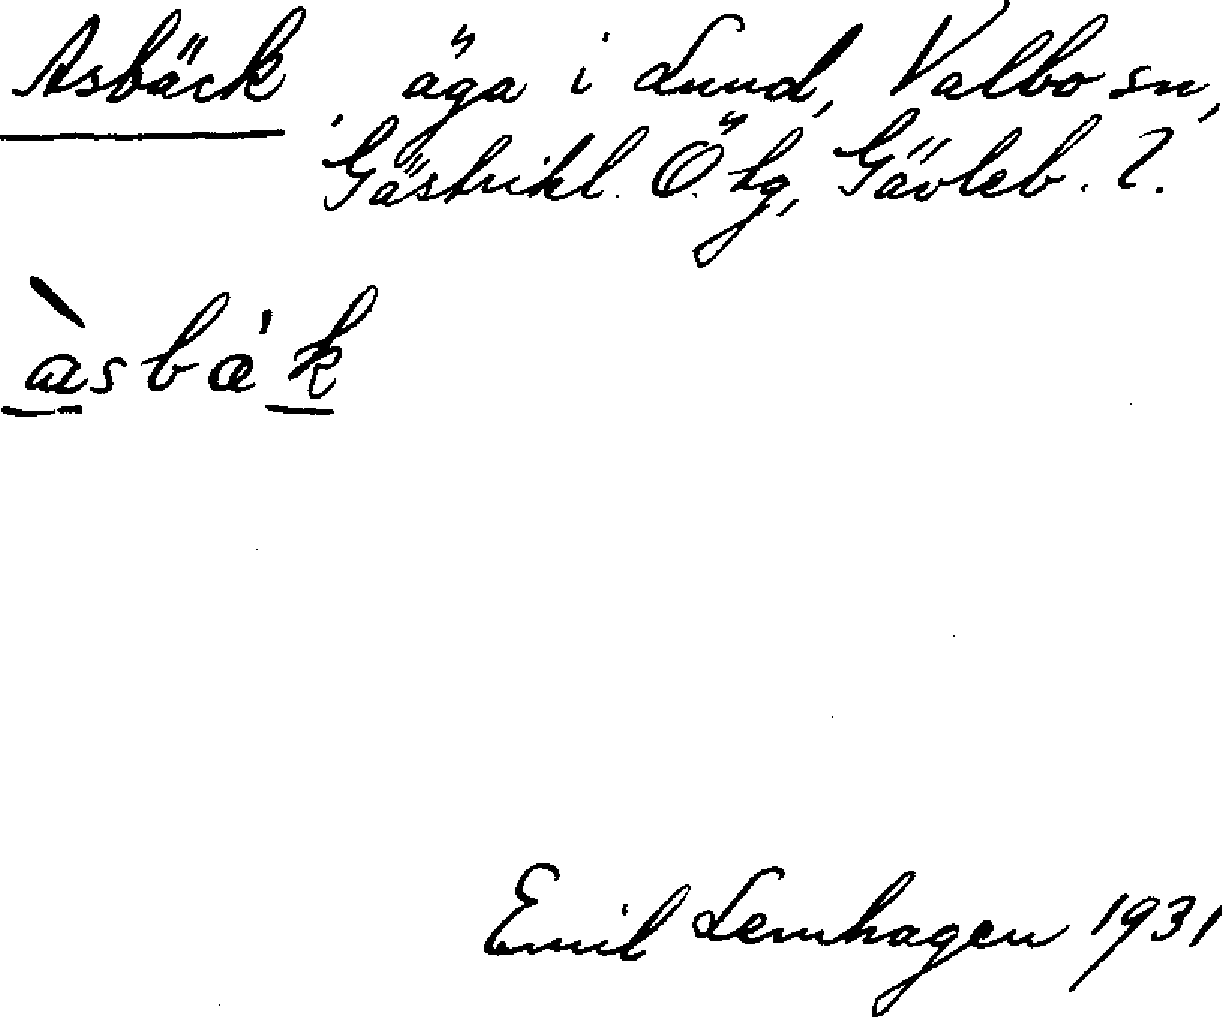 Asbäck äga i Lund, Valbo sn,
Gästrikl. Ö. tg, Gävleb. l.
àsbák
Emil Lenhagen 1931